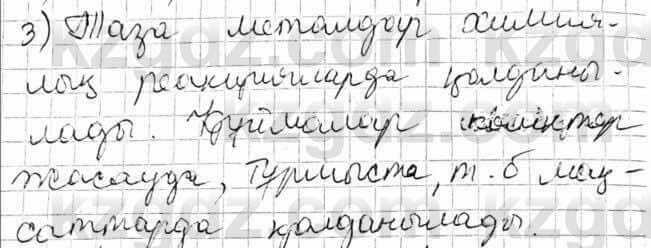 3) Таза металдар химия-
лық реакцияларда қолданы-
лады. Құймалар көліктер
жасауда, тұрмыста, т.б мақ-
саттарда қолданылады.